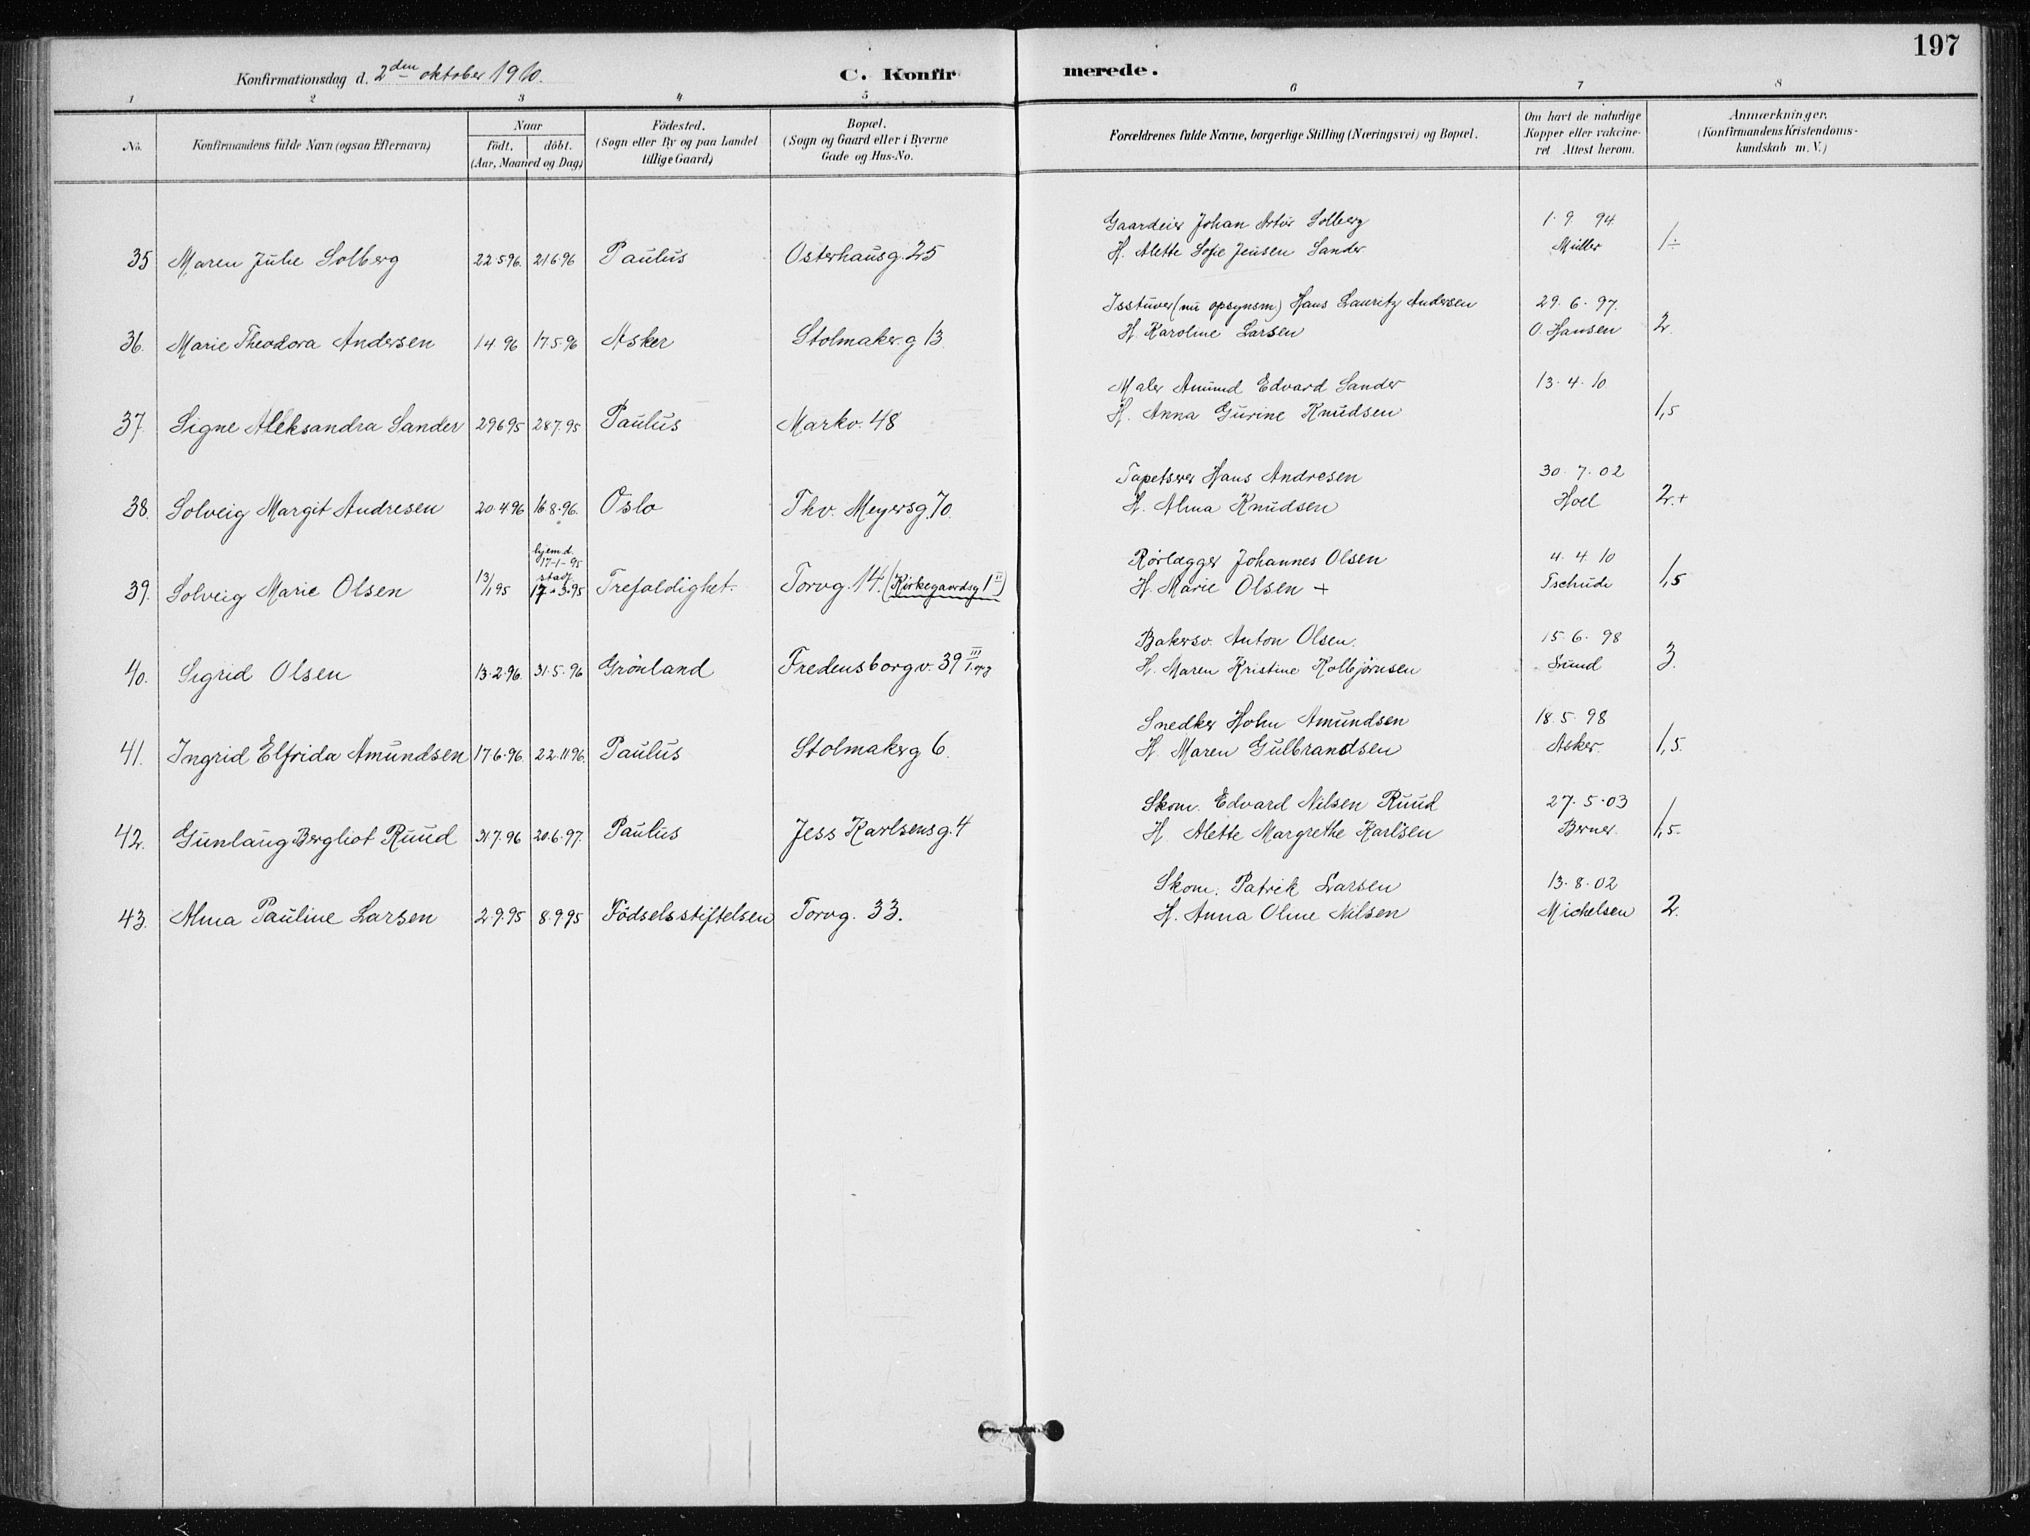 197
Konfirmationsdag d. 2den oktober 1910.
C. Konfir merede.
1 2 3 4 5 6 7 8
No. Konfirmandens fulde Navn (ogsaa Efternavn) Naar født. døbt. (Aar, Maaned og Dag) Fødested. (Sogn eller By og paa Landet tillige Gaard) Bopæl. (Sogn og Gaard eller i Byerne Gade og Hus-No. Forældrenes fulde Navne, borgerlige Stilling (Næringsvei) og Bopæl. Om havt de naturlige Kopper eller vakcineret Attest herom. Anmærkninger. (Konfirmandens Kristendomskundskab m. V.)
Gaardeier Johan Artur Solberg 1. 9 94
35 Maren Julie Solberg 22 5 96. 21 6 96 Paulus Osterhausg. 25 H. Alette Sofie Jensen Sander Müller 1÷
Isstuver (nu opsynsm) Hans Lauritz Andersen 29. 6. 97.
36. Marie Theodora Andersen 1 4 96 17.5.96 Asker Stolmaker.g 13. H. Karoline Larsen O. Hansen 2.
Maler Amund Edvard Sander 13. 4. 10
37. Signe Aleksandra Sander 29 6 95 28 7.95 Paulus Markv. 48 H. Anna Gurine Knudsen 1,5
Tapetserer Hans Andresen 30. 7. 02
38. Solveig Margit Andresen 20.4 96 16 8.96. Oslo Thv. Meyersg. 70. H. Alma Knudsen Hoel 2.+
hjemd. 17-1-95 stadf. Rørlægger Johannes Olsen 4. 4 10
39. Solveig Marie Olsen 13/1 95 17-3.95 Trefoldighet. Torvg. 14. (Kirkegaardsg 1 II) H. Marie Olsen + Tschude 1,5
Bakersv. Anton Olsen. 15. 6. 98
40. Sigrid Olsen 13.2.96. 31.5.96 Grønland Fredensborgv. 39 III I. opg H. Maren Kristine Kolbjørnsen Sund 3.
Snedker Hohn Amundsen 18. 5. 98
41. Ingrid Elfrida Amundsen 17 6.96. 22.11 96. Paulus Stolmakerg 6. H. Maren Gulbrandsen Asker. 1,5.
Skom. Edvard Nilsen Ruud 27. 5. 03
42. Gunlaug Bergliot Ruud 31 7. 96 20.6.97. Paulus Jess Karlsensg. 4 H. Alette Margrethe Karlsen Berner. 1,5.
Skom. Patrik Larsen 13. 8. 02
43. Alma Pauline Larsen 2.9.95 8.9 95 Fødselsstiftelsen Torvg. 33. H. Anna Oline Nilsen Michelsen 2.